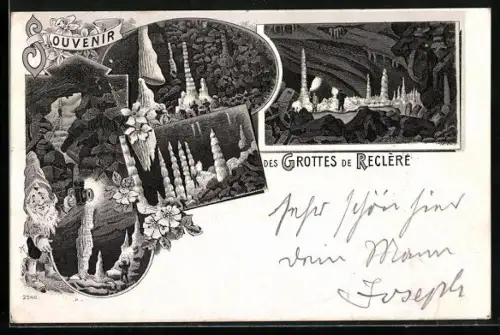 SOUVENIR
DES GROTTES DE RECLÈRE
Sehr schön hier
dein Mann
Joseph
2560